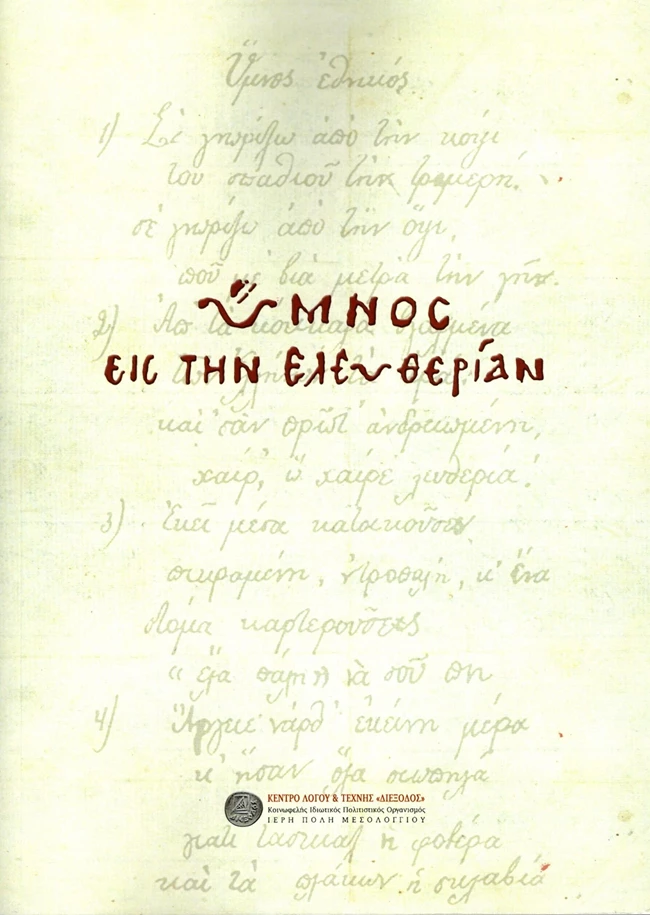 Ὕμνος ἐθνικός
1) Σὲ γνωρίζω ἀπὸ τὴν κόψι
τοῦ σπαθιοῦ τὴν τρομερή,
σὲ γνωρίζω ἀπὸ τὴν ὄψι,
ποῦ μὲ βιὰ μετρᾶ τὴν γῆν.
ὝΜΝΟΣ
2) Ἀπ τὰ κόκκαλα
ΕΙΣ ΤΗΝ ΕΛΕΥΘΕΡΊΑΝ
καὶ σὰν πρῶτ' ἀνδρειωμένη,
χαῖρ', ὢ χαῖρε λευθεριά!
3) Ἐκεῖ μέσα κατοικοῦσες
πικραμένη, ντροπαλή, κ' ἕνα
στόμα καρτεροῦσες
« ἔλα πάλι » νὰ σοῦ πῆ
4) Ἄργειε νάρθ' ἐκείνη μέρα
κ' ἦσαν ὅλα σιωπηλά
ΚΕΝΤΡΟ ΛΟΓΟΥ & ΤΕΧΝΗΣ «ΔΙΕΞΟΔΟΣ»
Κοινωφελής Ιδιωτικός Πολιτιστικός Οργανισμός
ΙΕΡΗ ΠΟΛΗ ΜΕΣΟΛΟΓΓΙΟΥ
γιατὶ τάσκιαζ ἡ φοβέρα
καὶ τὰ πλάκων ἡ σκλαβιά